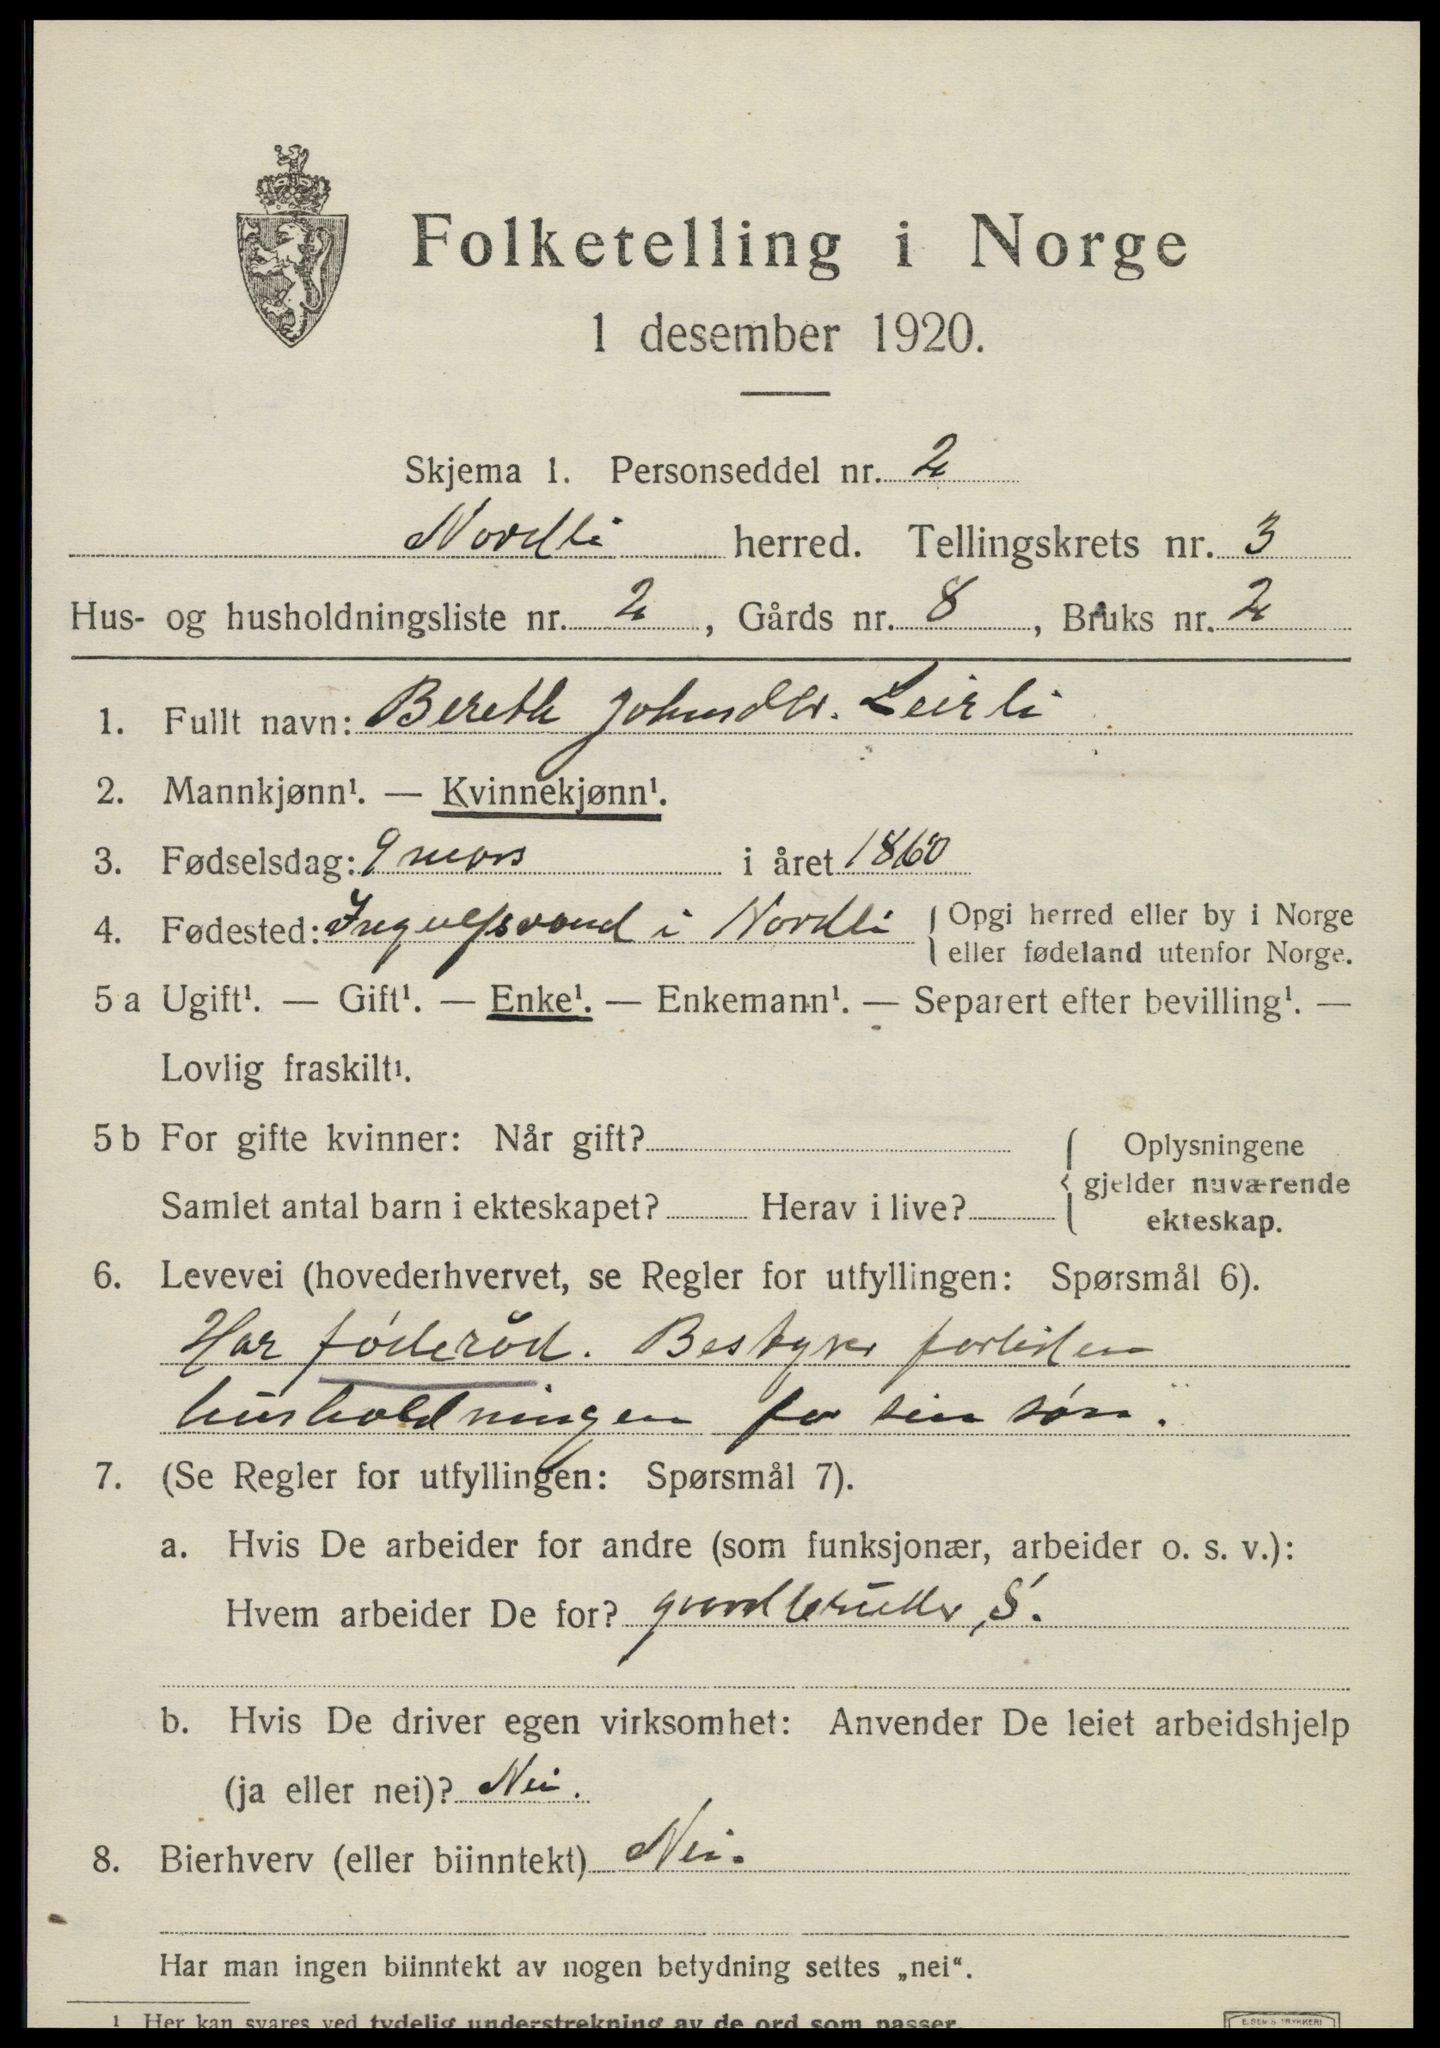 Folketelling i Norge
1 desember 1920.
Skjema 1. Personseddel nr. 2
Nordli herred. Tellingskrets nr. 3
Hus- og husholdningsliste nr. 2, Gårds nr. 8, Bruks nr. 2
1. Fullt navn: Bereth Johnsdtr. Leirli
2. Mannkjønn¹. — Kvinnekjønn¹.
3. Fødselsdag: 9 mars i året 1860
4. Fødested: Ingulfsvand i Nordli { Opgi herred eller by i Norge
eller fødeland utenfor Norge.
5 a Ugift¹. — Gift¹. — Enke¹. — Enkemann¹. — Separert efter bevilling¹. —
Lovlig fraskilt¹.
5 b For gifte kvinner: Når gift?
Samlet antal barn i ekteskapet? Herav i live?
Oplysningene
gjelder nuværende
ekteskap.
6. Levevei (hovederhvervet, se Regler for utfyllingen: Spørsmål 6).
Har føderåd. Bestyrer fortiden
husholdningen for sin søn.
7. (Se Regler for utfyllingen: Spørsmål 7).
a. Hvis De arbeider for andre (som funksjonær, arbeider o. s. v.):
Hvem arbeider De for? gaardbruker S.
b. Hvis De driver egen virksomhet: Anvender De leiet arbeidshjelp
(ja eller nei)? Nei.
8. Bierhverv (eller biinntekt) Nei.
Har man ingen biinntekt av nogen betydning settes „nei“.
¹ Her kan svares ved tydelig understrekning av de ord som passer.